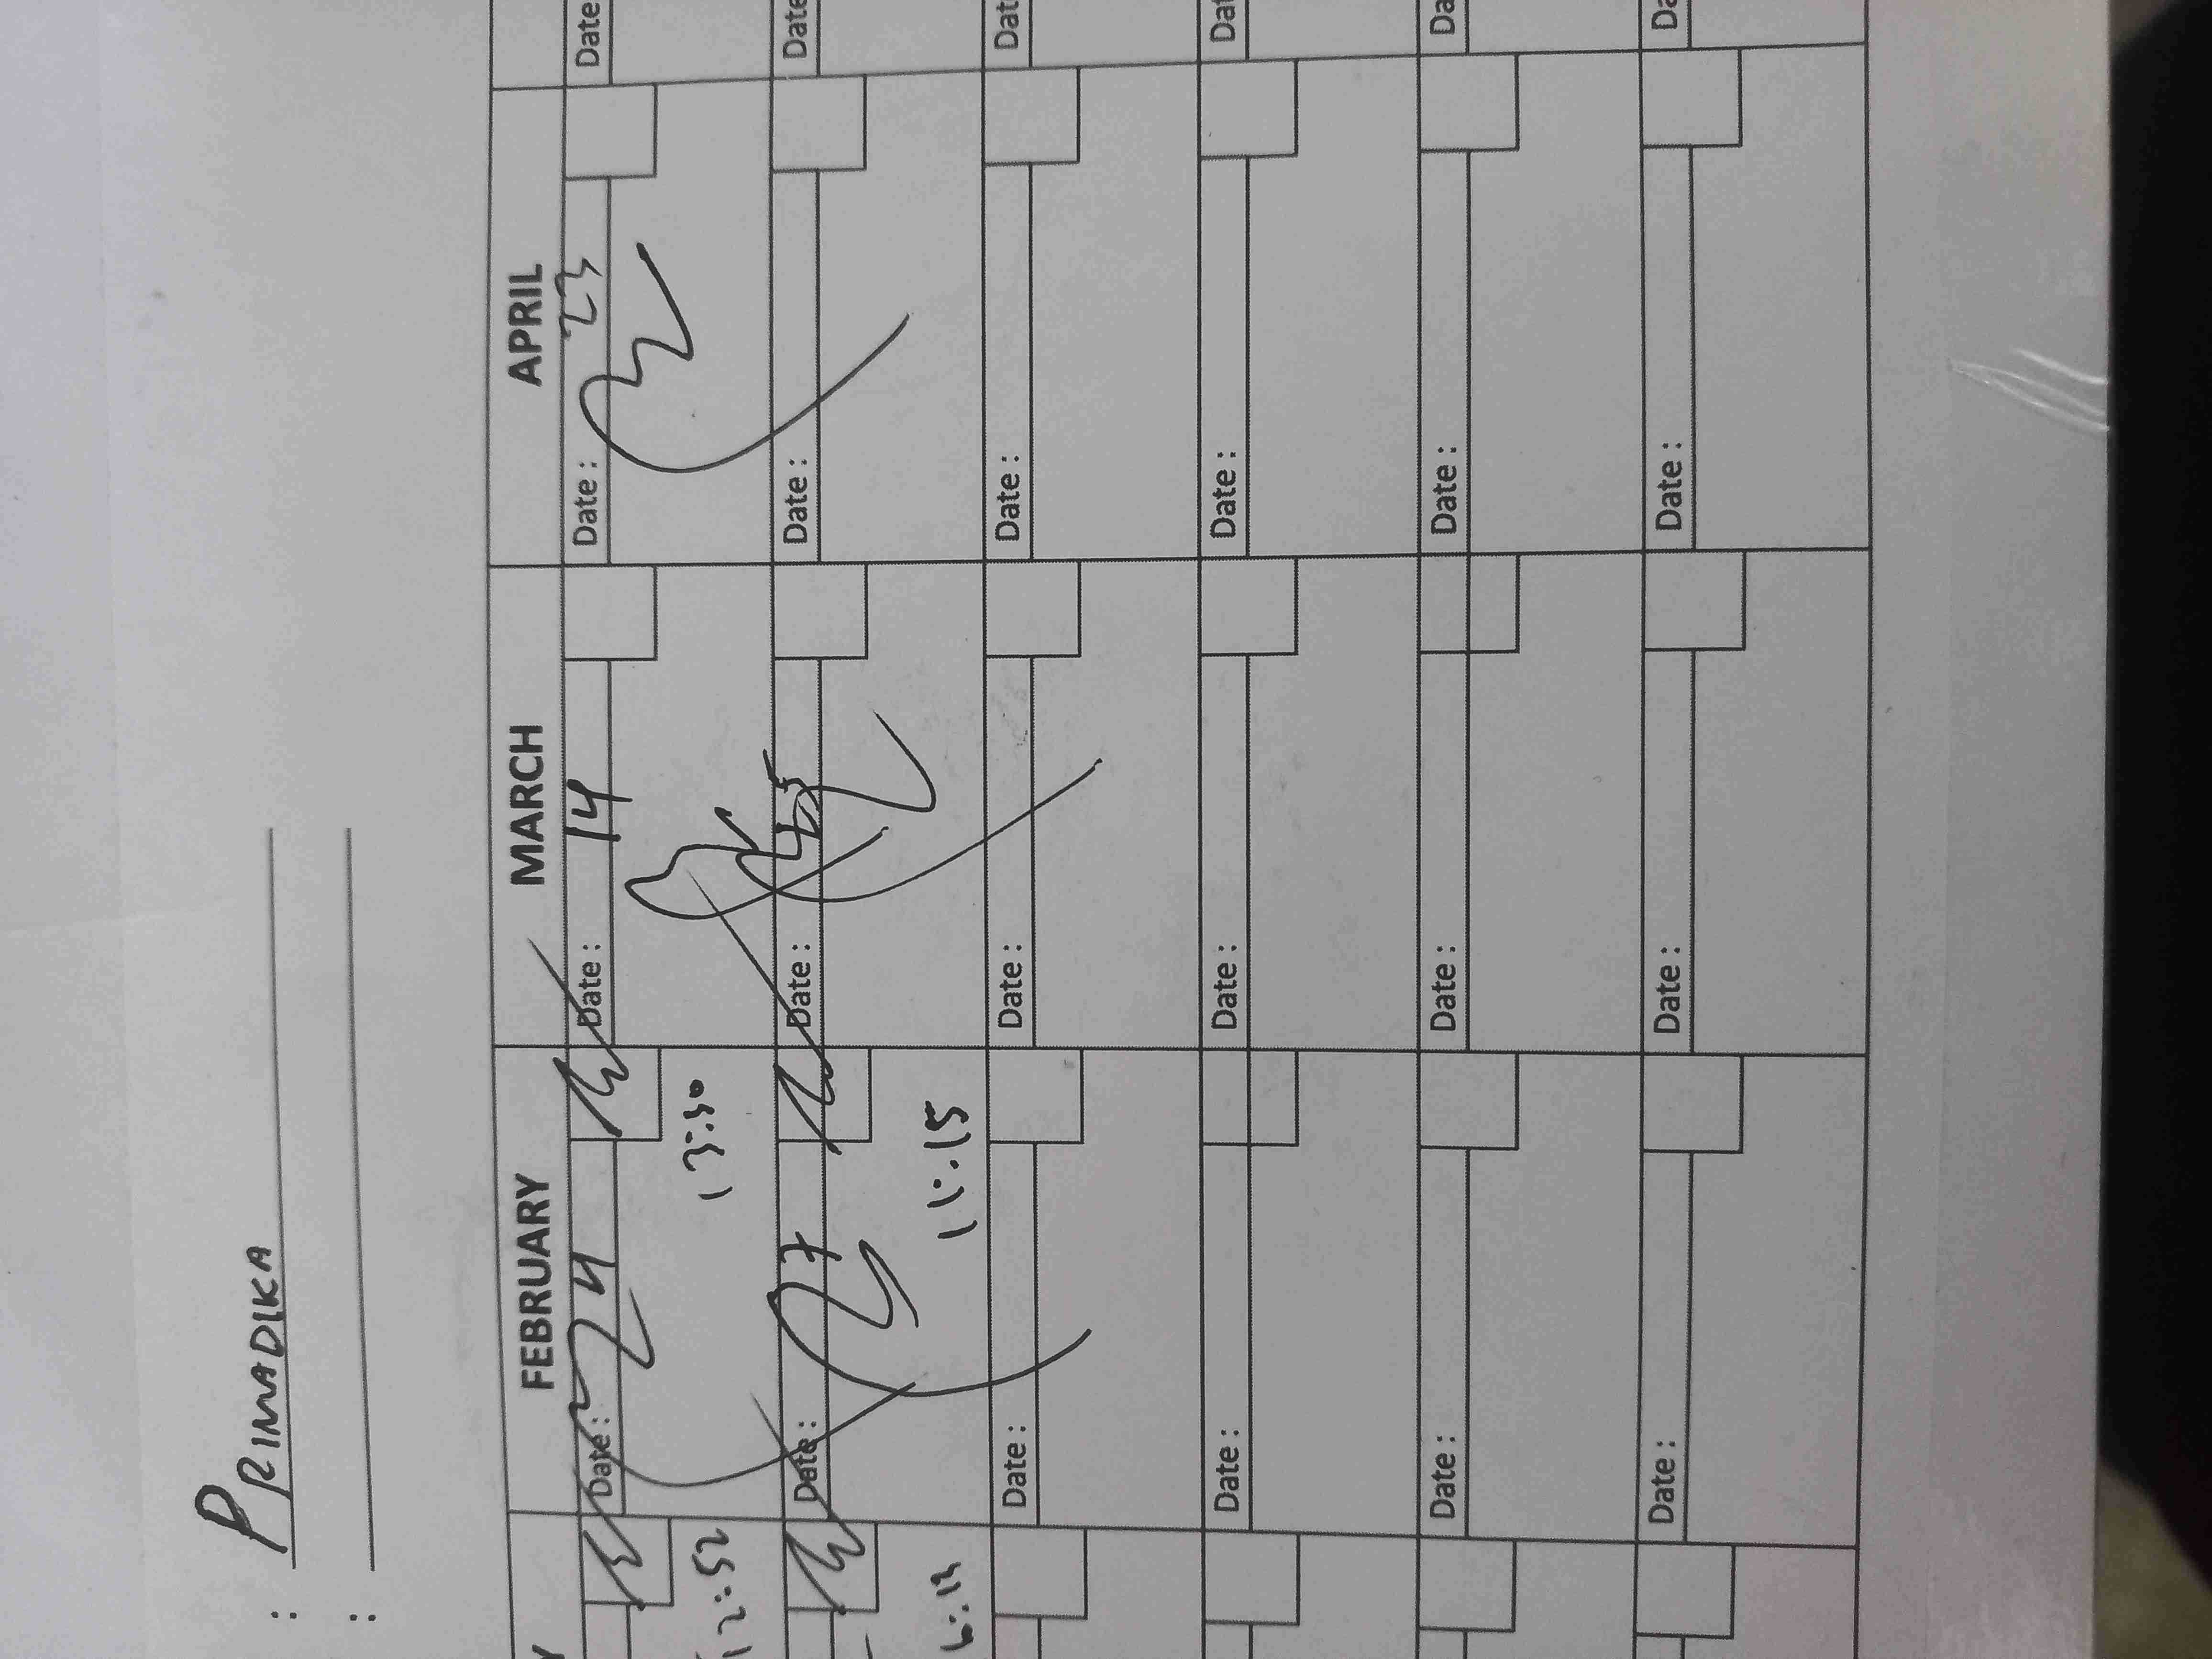 : PRIMADIKA
:
Y FEBRUARY MARCH APRIL
Date : 24 Date : 14 Date : 23 Date
12:52 13:30
Date : 27 Date : Date : Date
11:15
Date : Date : Date : Dat
Date : Date : Date : Dat
Date : Date : Date : Da
Date : Date : Date : Da